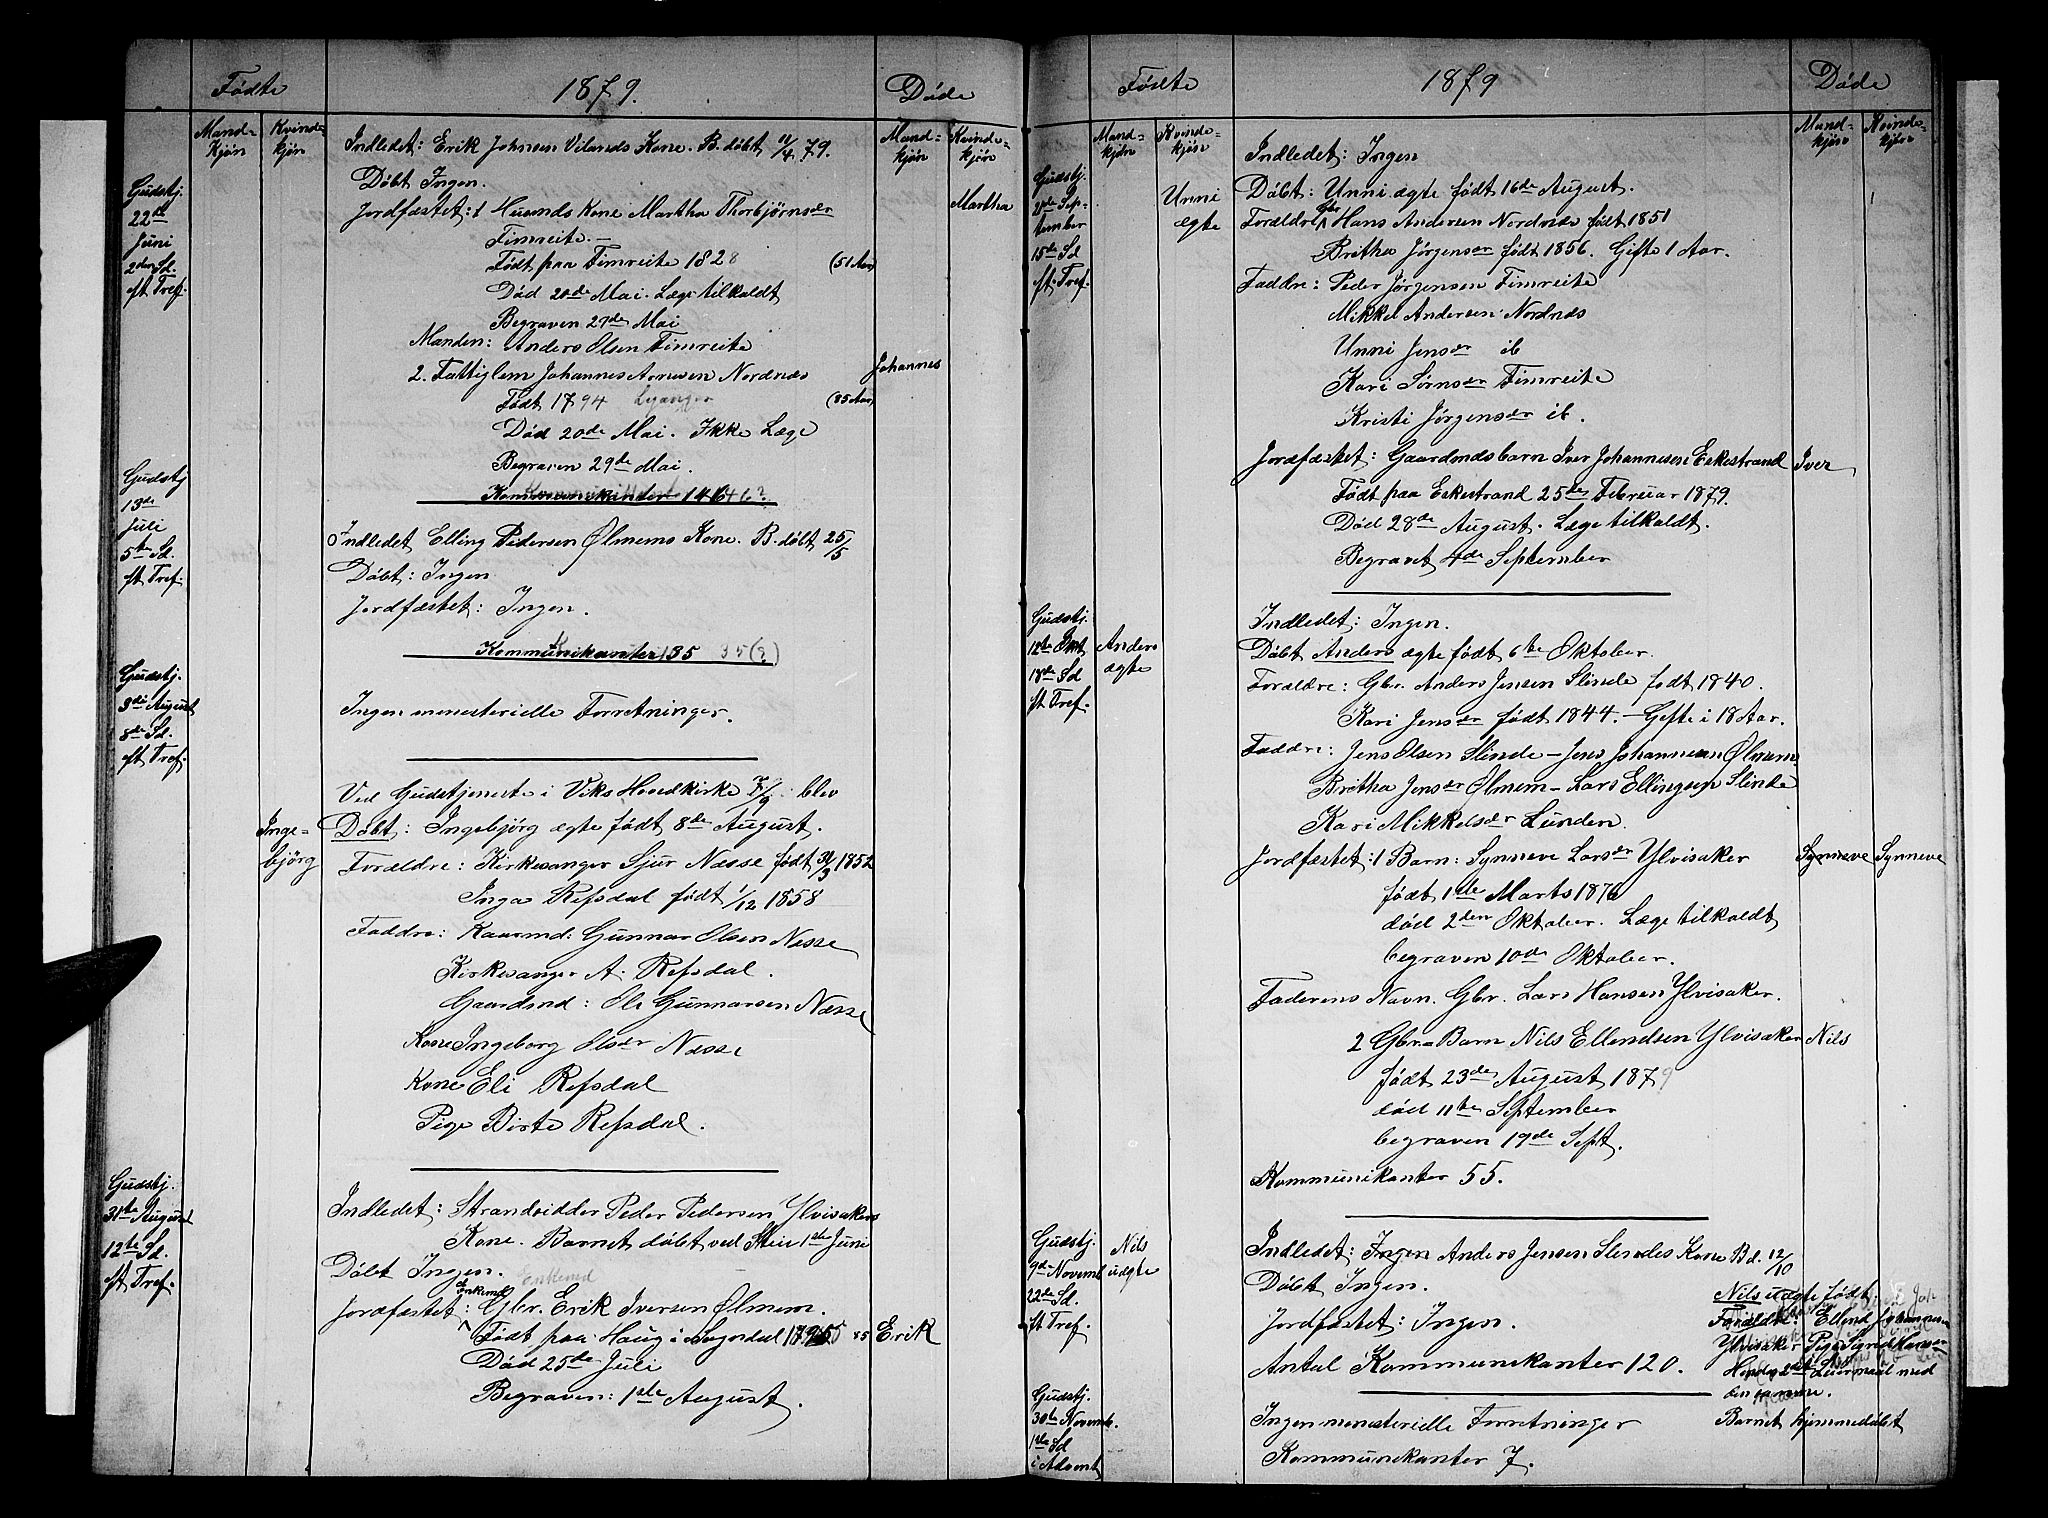 Fødte
1879.
Døde
Mand-
kjøn
Kvinde-
kjøn
Mand-
kjøn
Kvinde-
kjøn
Gudstj.
22de
Juni
2den Sd.
ft Tref.
Indledet: Erik Johnsen Vilands Kone. B. døbt 11/4 79.
Døbt Ingen.
Jordfæstet: 1 Husmds Kone Martha Thorbjørnsdr
Martha
Fimreite. —
Født paa Fimreite 1828
(51 Aar)
Død 20de Mai. Læge tilkaldt
Begraven 29de Mai
Manden: Anders Olsen Fimreite
2. Fattiglem Johannes Arnesen Nordnæs
Johannes
Født 1794 Leganger
(85 Aar)
Død 20de Mai. Ikke Læge
Begraven 29de Mai.
Kommunikanter 146 46?
Gudstj
13de
Juli
5te Sd.
ft Tref.
Indledet Elling Pedersen Ølmems Kone. B. døbt 25/5
Døbt: Ingen
Jordfæstet: Ingen.
Kommunikanter 135 35(?)
Gudstj.
3die August
8de Sd.
ft Tref.
Ingen menesterielle Forretninger.
Ved Gudstjeneste i Viks Hovedkirke 7/9 blev
Inge-
bjørg
Døbt: Ingebjørg ægte født 8de August.
Forældre: Kirkesanger Sjur Næsse født 31/3 1852
Inga Refsdal født 1/12 1858
Faddre: Kaarmd: Gunnar Olsen Næsse
Kirkesanger A. Refsdal.
Gaardmd: Ole Gunnarsen Næsse
Kone Ingeborg Olsdr Næsse
Kone Eli Refsdal
Pige Birte Refsdal.
Gudstj.
31te August
12te Sd.
ft Tref.
Indledet: Strandsidder Peder Pedersen Ylvisakers
Kone. Barnet døbt ved Stein 1ste Juni
Døbt Ingen.
Enkemd
Jordfæstet: Gbr. Erik Iversen Ølmem.
Født paa Haug i Sogndal
85
Erik
Død 25de Juli
Begraven: 1ste August.
Fødte
1879
Døde
Mand-
kjøn
Kvinde-
kjøn
Mand-
kjøn
Kvinde-
kjøn
Gudstj.
Sep-
tember
15de Sd
ft Tref.
Unni
ægte
Indledet: Ingen
Døbt: Unni ægte født 16de August.
Forældre Gbr Hans Andersen Nordnæs født 1851
Britha Jørgensdr født 1856. Gifte 1 Aar.
Faddre: Peder Jørgensen Fimreite
Mikkel Andersen Nordnæs
Unni Jensdr ib
Kari Sørnsdr Fimreite
Kristi Jørgensdr ib.
Jordfæstet: Gaardmdsbarn Iver Johannesen Eskestrand
Iver
Født paa Eskestrand 25de Februar 1879.
Død 28de August. Læge tilkaldt.
Begravet 4de September
Gudstj.
12te Okt
18de Sd
ft Tref.
Anders
ægte
Indledet: Ingen.
Døbt Anders ægte født 6te Oktober.
Forældre: Gbr. Anders Jensen Slinde født 1840.
Kari Jensdr født 1844. — Gifte i 18 Aar.
Faddre: Jens Olsen Slinde — Jens Johannesen Ølmem
Britha Jensdr Ølmem — Lars Ellingsen Slinde
Kari Mikkelsdr Lunden.
Jordfæstet: 1 Barn: Synneve Larsdr Ylvisaker
Synneve
Synneve
født 1ste Marts 1876
død 2den Oktober. Læge tilkaldt
begraven 10de Oktober.
Faderens Navn. Gbr. Lars Hansen Ylvisaker.
2 Gbrs Barn Nils Ellendsen Ylvisaker
Nils
født 23de August 1879
død 11te September
begraven 19de Sept.
Kommunikanter 55.
Gudstj.
9de Novemb
22de Sd.
ft Tref.
Nils
uægte
Indledet: Ingen Anders Jensen Slindes Kone B d. 12/10
Døbt Ingen.
Jordfæstet: Ingen.
Antal Kommunikanter 120.
Nils uægte født
Forældre: Ellend Johannesen
Ylvisaker Pige Signd Hansd
Hendes 2det Leiermaal med
den samme.
Barnet hjemmedøbt
Gudstj.
30te Novemb.
1ste Sd
i Advent
Ingen menesterielle Forretninger
Kommunikanter 7.